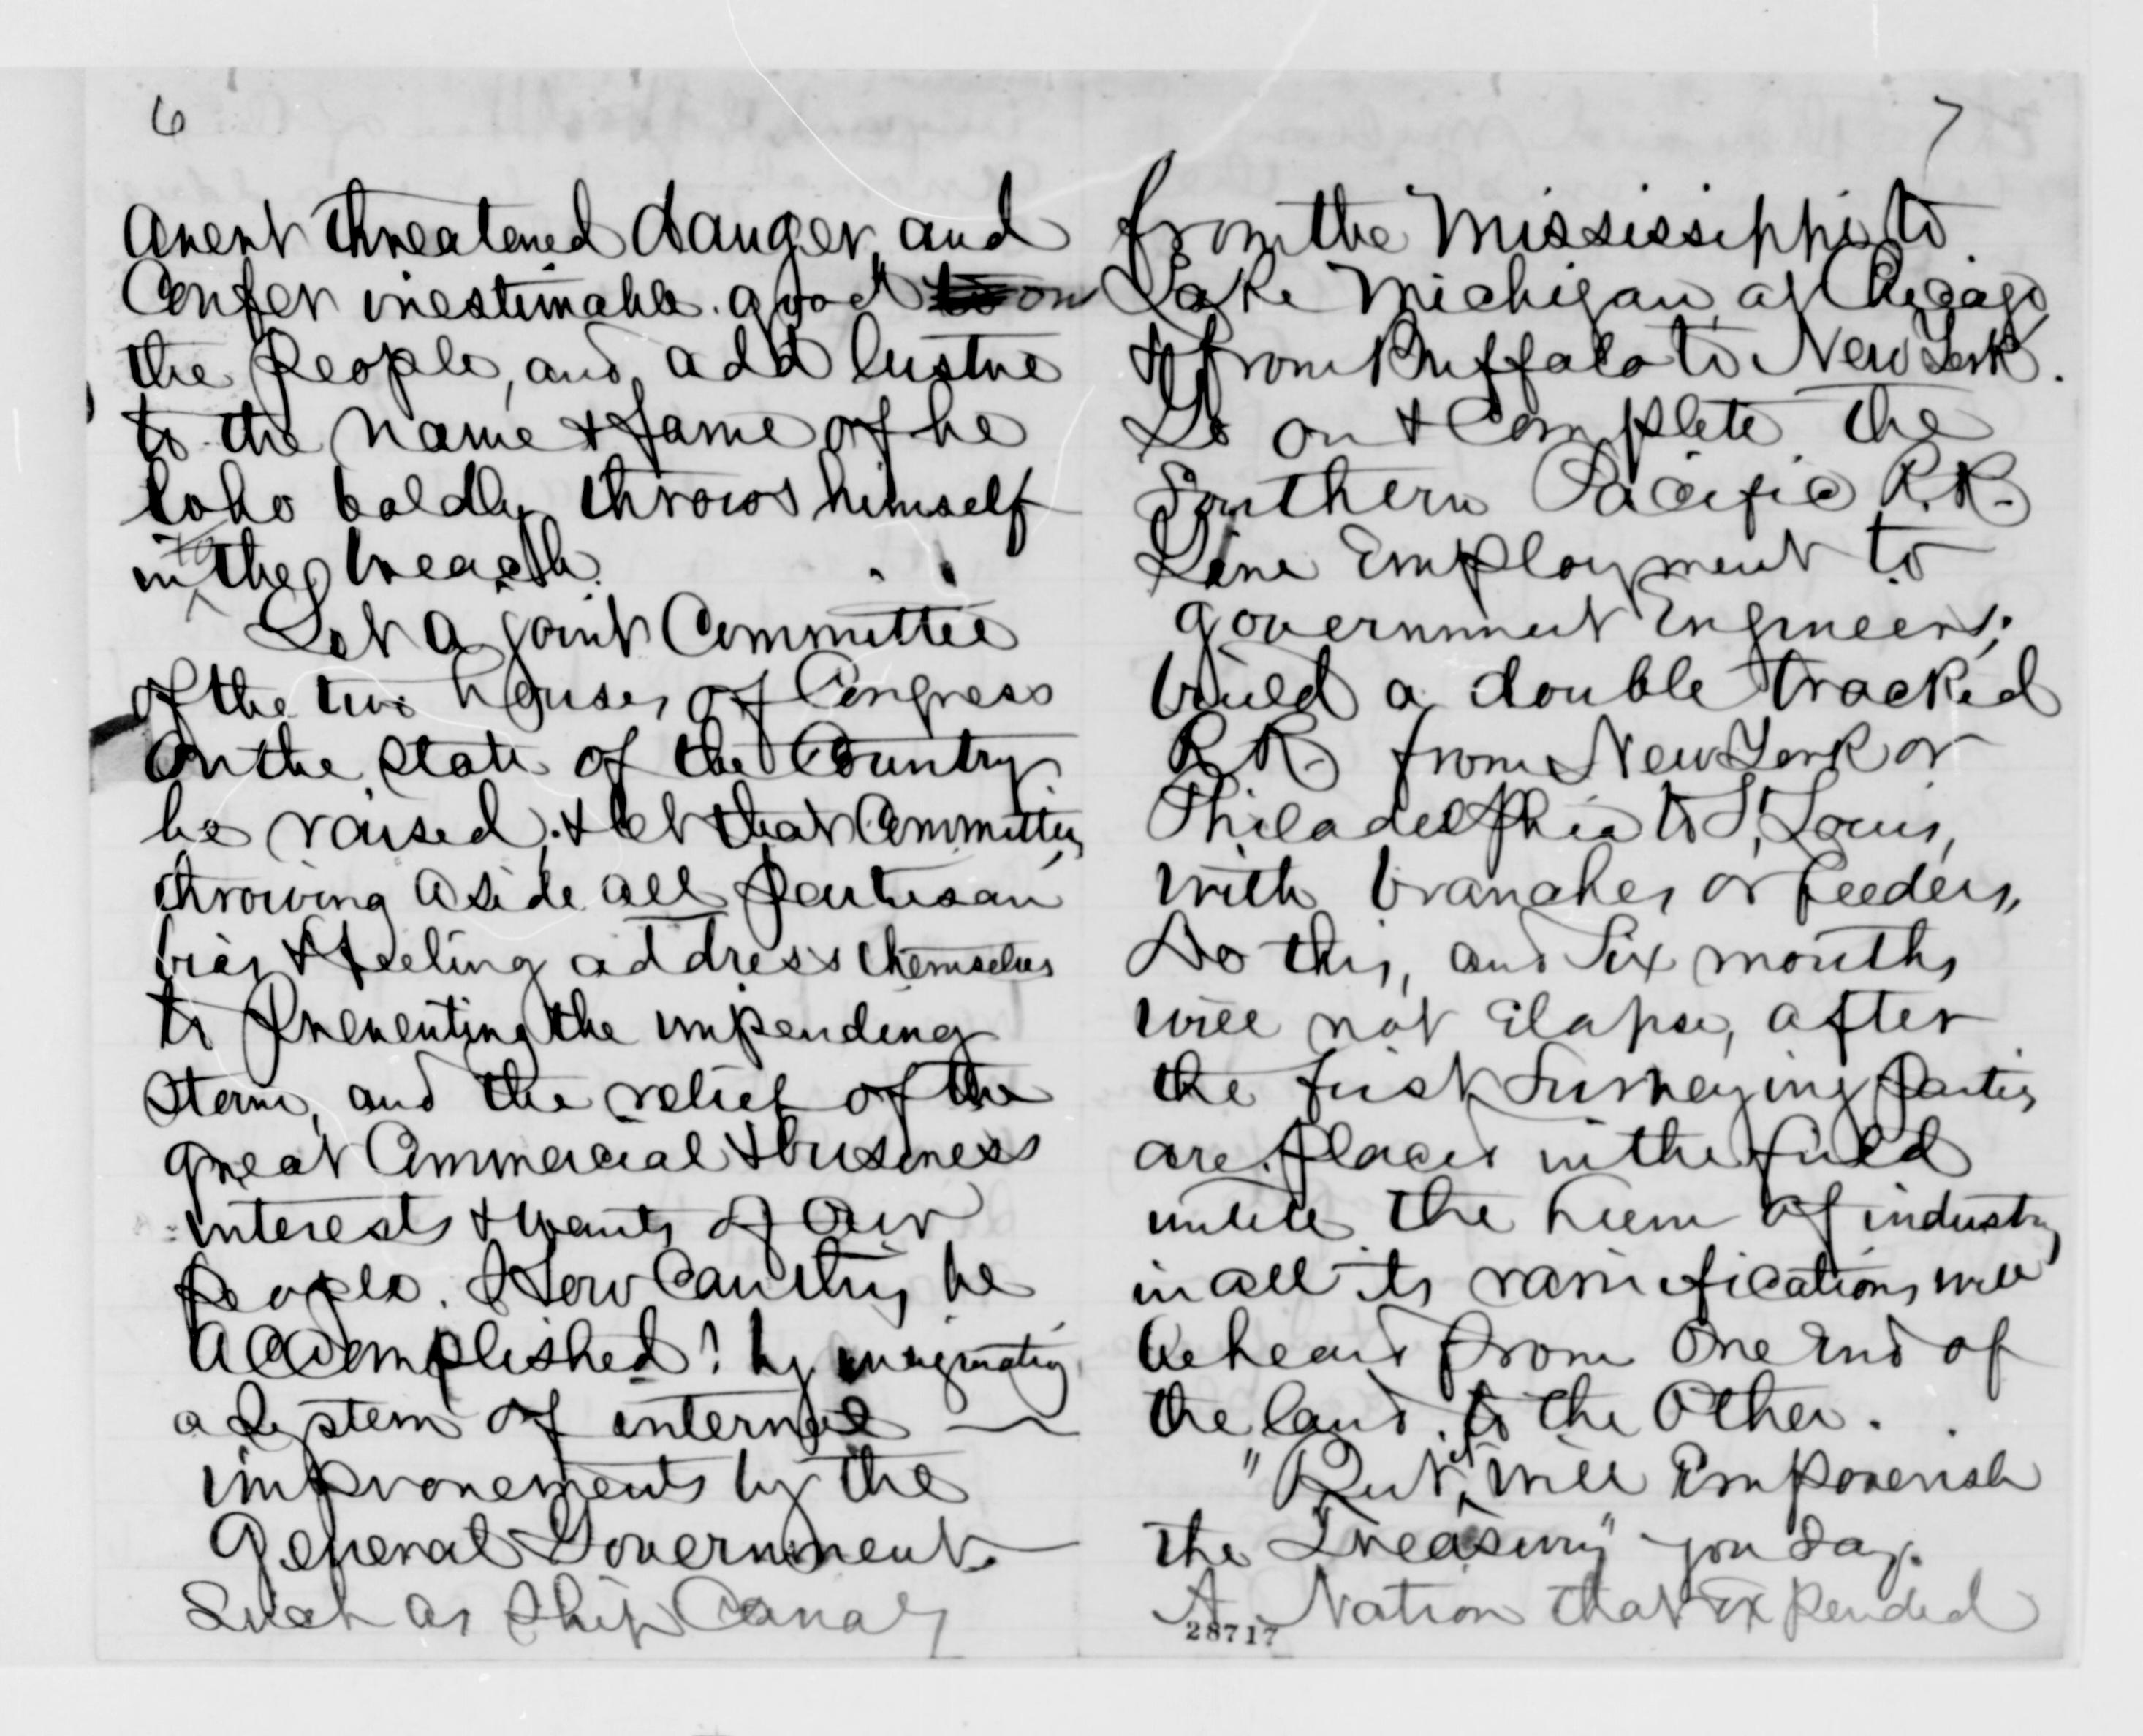 6
avert threatened danger, and
Confer inestimable good to on
the people, and add lustre
to the name & fame of he
who boldly throws himself
into the breach.
Let a joint Committee
of the two houses of Congress
on the state of the Country
be raised; & let that Committee,
throwing aside all partisan
bias & feeling address themselves
to preventing the impending
storm, and the relief of the
great Commercial & business
interests & wants of our
people. How can this be
accomplished? by inaugurating
a System of internal
improvements by the
General Government
Such as Ship Canals
7
from the Mississippi to
Lake Michigan, at Chicago
& from Buffalo to New York.
Go on & Complete the
Southern Pacific R.R.
Give Employment to
government Engineers;
build a double tracked
R R from New York or
Philadelphia to St. Louis,
with branches or feeders,
Do this, and Six months
will not Elapse, after
the first Surveying parties
are placed in the field
until the hum of industry
in all its ramifications will
be heard from one End of
the land to the other.
"But it will Empoverish
the Treasury" you say.
A Nation that Expended
28717